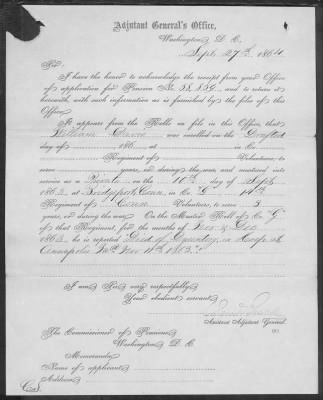 Adjutant General's Office,
Washington, D. C.
Sept. 27th, 1864
Sir:
I have the honor to acknowledge the receipt from your Office
of application for Pension No. 38.159, and to return it
herewith, with such information as is furnished by the files of this
Office.
It appears from the Rolls on file in this Office, that
William was enrolled on the Drafted
day of 186 , at in Co.
Regiment of Volunteers, to
serve years, or during the war, and mustered into
service as a Private on the day of Sept.
1863, at Bridgeport, Conn, in Co. "G" 14th
Regiment of Conn Volunteers, to serve 3
years, or during the war. On the Muster Roll of Co. "G"
of that Regiment, for the months of Nov & Dec
1863, he is reported Died of Dysentery, in Hosp. at
Annapolis Md. Nov 11th 1863.
I am Sir, very respectfully,
Your obedient servant,
Assistant Adjutant General.
The Commissioner of Pensions,
Washington, D. C.
Memoranda:
Name of applicant
Address